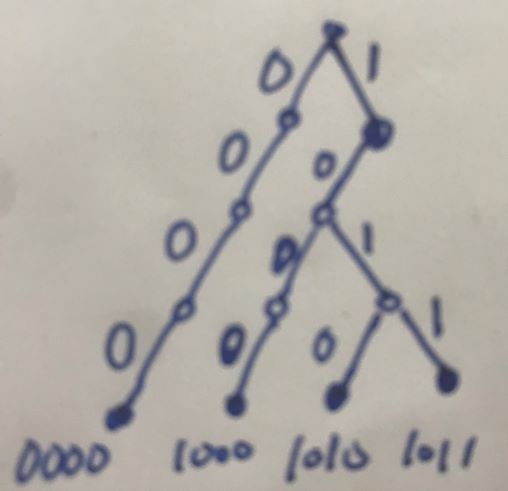 0 1
0 0
0 0 1
0 0 0 1
0000 1000 1010 1011